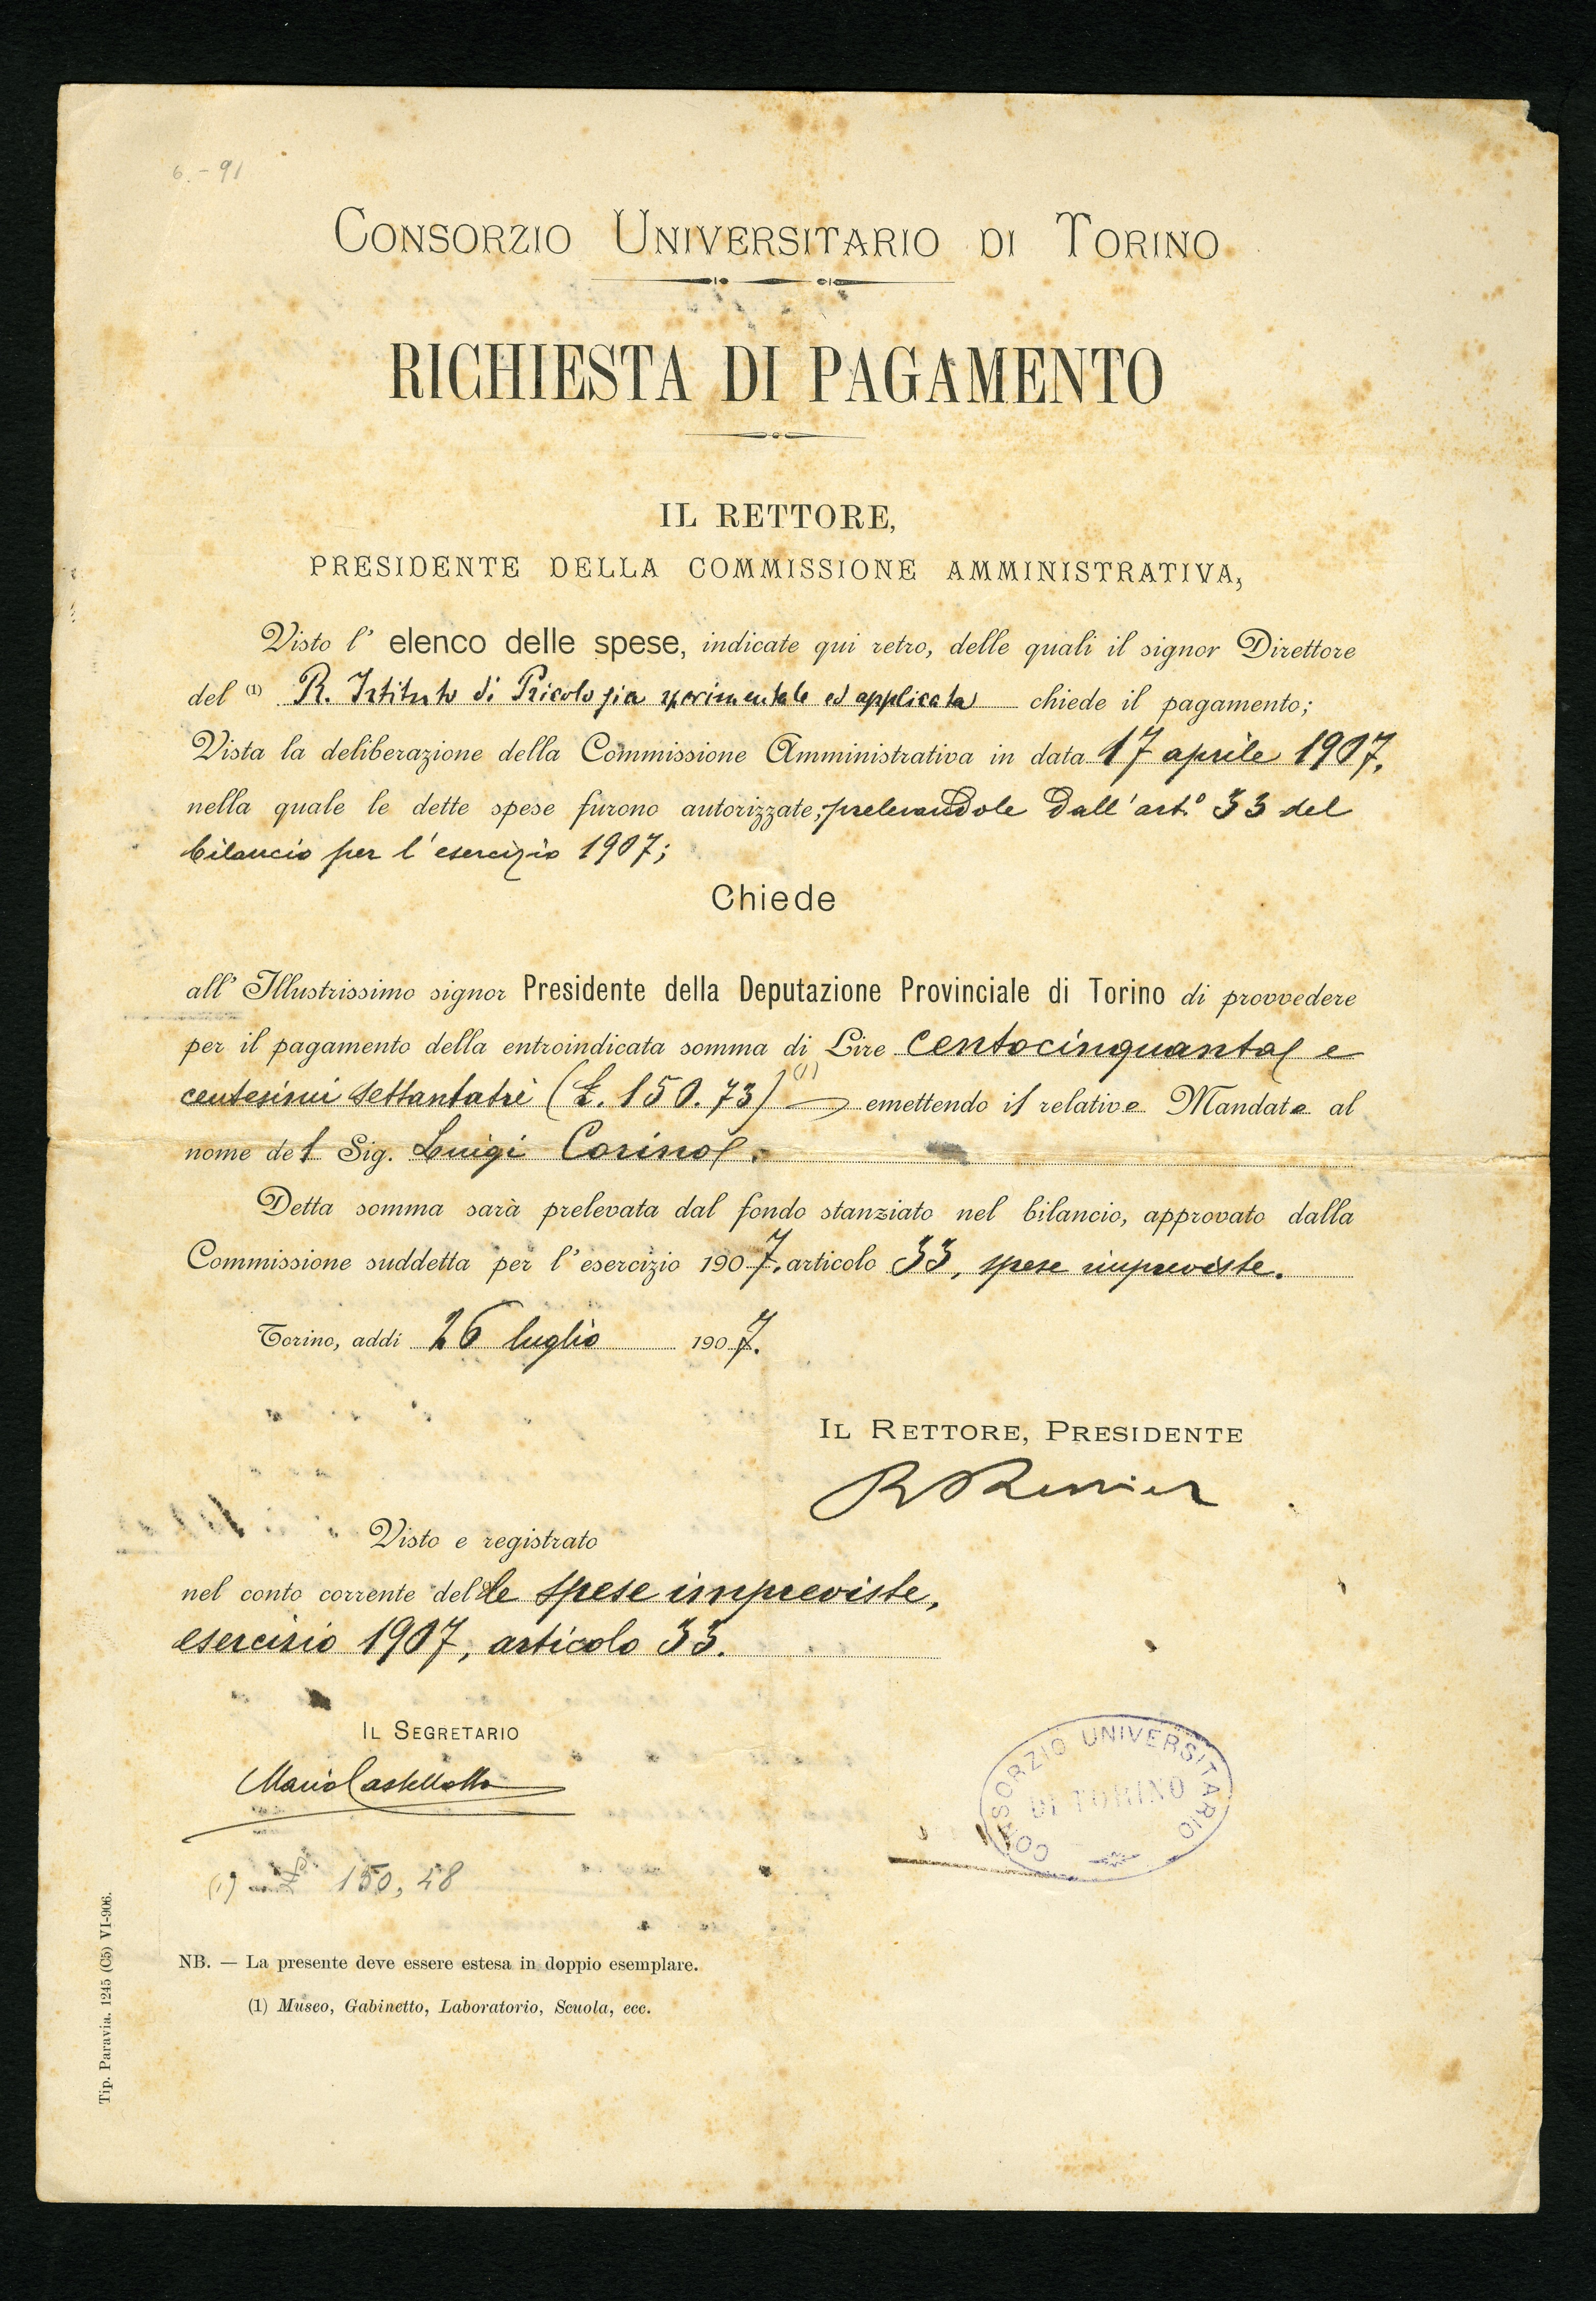 6.-91
CONSORZIO UNIVERSITARIO DI TORINO
RICHIESTA DI PAGAMENTO
IL RETTORE,
PRESIDENTE DELLA COMMISSIONE AMMINISTRATIVA,
Visto l' elenco delle spese, indicate qui retro, delle quali il signor Direttore
del (1) R. Istituto di Psicologia sperimentale ed applicata chiede il pagamento;
Vista la deliberazione della Commissione Amministrativa in data 17 aprile 1907,
nella quale le dette spese furono autorizzate, prelevandole dall'art.º 33 del
bilancio per l'esercizio 1907;
Chiede
all' Illustrissimo signor Presidente della Deputazione Provinciale di Torino di provvedere
per il pagamento della entroindicata somma di Lire centocinquanta e
centesimi settantatrè (£. 150.73) (1) emettendo il relativo Mandato al
nome del Sig. Luigi Corino.
Detta somma sarà prelevata dal fondo stanziato nel bilancio, approvato dalla
Commissione suddetta per l'esercizio 1907, articolo 33, spese impreviste.
Torino, addì 26 luglio 1907.
IL RETTORE, PRESIDENTE
R Renier
Visto e registrato
nel conto corrente delle spese impreviste,
esercizio 1907, articolo 33.
IL SEGRETARIO
Mario Castellotto
CONSORZIO UNIVERSITARIO
DI TORINO
(1) 150,48
NB. — La presente deve essere estesa in doppio esemplare.
(1) Museo, Gabinetto, Laboratorio, Scuola, ecc.
Tip. Paravia. 1245 (C5) VI-906.